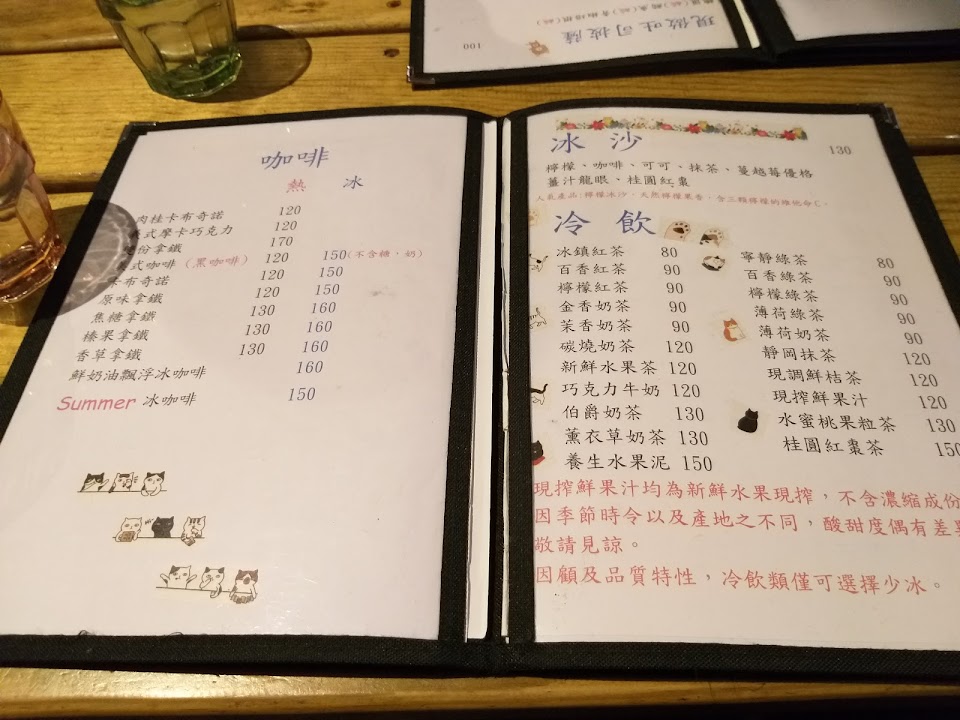 現做吐司披薩 100
咖啡
熱 冰
肉桂卡布奇諾 120
式摩卡巧克力 120
份拿鐵 170
式咖啡（黑咖啡） 120 150(不含糖，奶)
卡布奇諾 120 150
原味拿鐵 120 150
焦糖拿鐵 130 160
榛果拿鐵 130 160
香草拿鐵 130 160
鮮奶油飄浮冰咖啡 160
Summer 冰咖啡 150
冰 沙 130
檸檬、咖啡、可可、抹茶、蔓越莓優格
薑汁龍眼、桂圓紅棗
人氣產品:檸檬冰沙，天然檸檬果香，含三顆檸檬的維他命C。
冷 飲
冰鎮紅茶 80 寧靜綠茶 80
百香紅茶 90 百香綠茶 90
檸檬紅茶 90 檸檬綠茶 90
金香奶茶 90 薄荷綠茶 90
茉香奶茶 90 薄荷奶茶 90
碳燒奶茶 120 靜岡抹茶 120
新鮮水果茶 120 現調鮮桔茶 120
巧克力牛奶 120 現搾鮮果汁 120
伯爵奶茶 130 水蜜桃果粒茶 130
薰衣草奶茶 130 桂圓紅棗茶 150
養生水果泥 150
現搾鮮果汁均為新鮮水果現搾，不含濃縮成份
因季節時令以及產地之不同，酸甜度偶有差異
敬請見諒。
因顧及品質特性，冷飲類僅可選擇少冰。